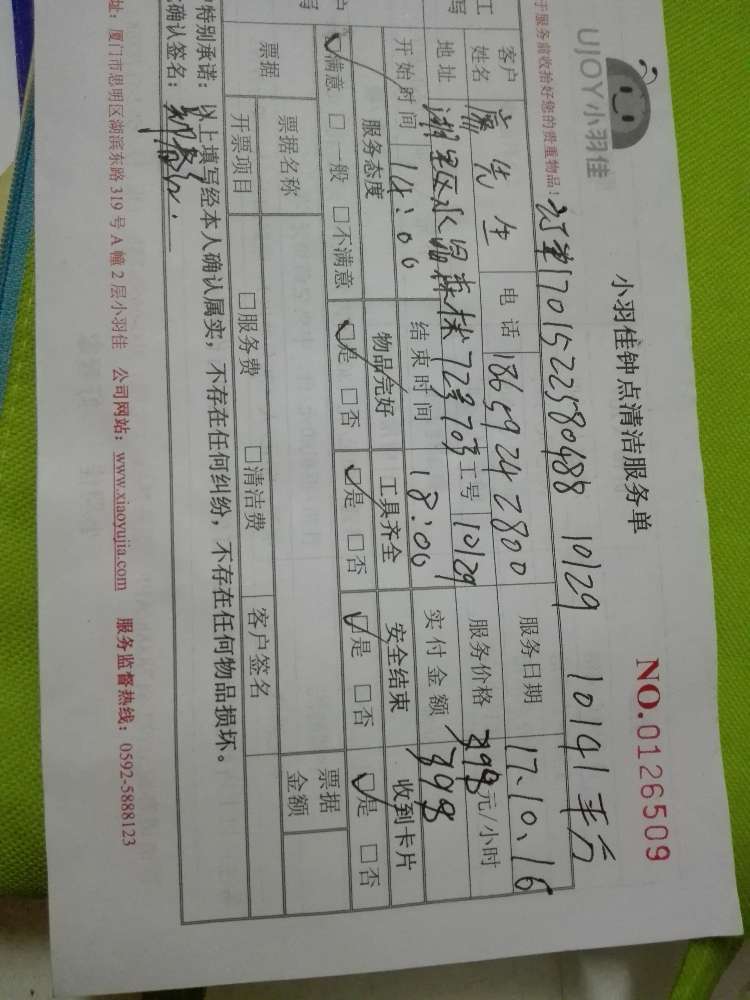 UJOY小羽佳
小羽佳钟点清洁服务单
NO.0126509
于服务前收拾好您的贵重物品！
订单1701522580488 10129 10191平方
客户姓名 廖先生 电话 18659242800 服务日期 17.10.16
地址 湖里区水晶森林72号703 工号 10129 服务价格 398元/小时
开始时间 14:00 结束时间 18:00 实付金额 398
服务态度 物品完好 工具齐全 安全结束 收到卡片
☑满意 □一般 □不满意 ☑是 □否 ☑是 □否 ☑是 □否 ☑是 □否
票据 票据名称 票据金额
开票项目 □服务费 □清洁费 客户签名
特别承诺：以上填写经本人确认属实，不存在任何纠纷，不存在任何物品损坏。
确认签名：
址：厦门市思明区湖滨东路 319 号 A 幢 2 层小羽佳 公司网站：www.xiaoyujia.com 服务监督热线：0592-5888123